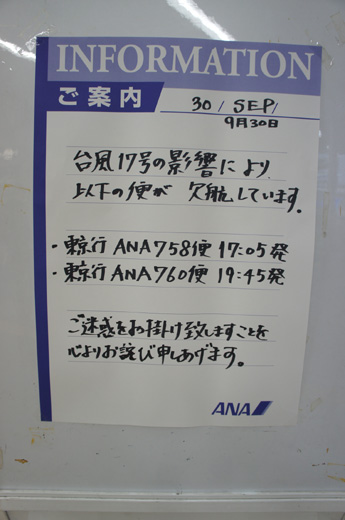 INFORMATION
ご案内
30 / SEP /
9月30日
台風17号の影響により
以下の便が 欠航しています。
・東京行 ANA758便 17:05発
・東京行 ANA760便 19:45発
ご迷惑をお掛け致しますことを
心よりお詫び申しあげます。
ANA